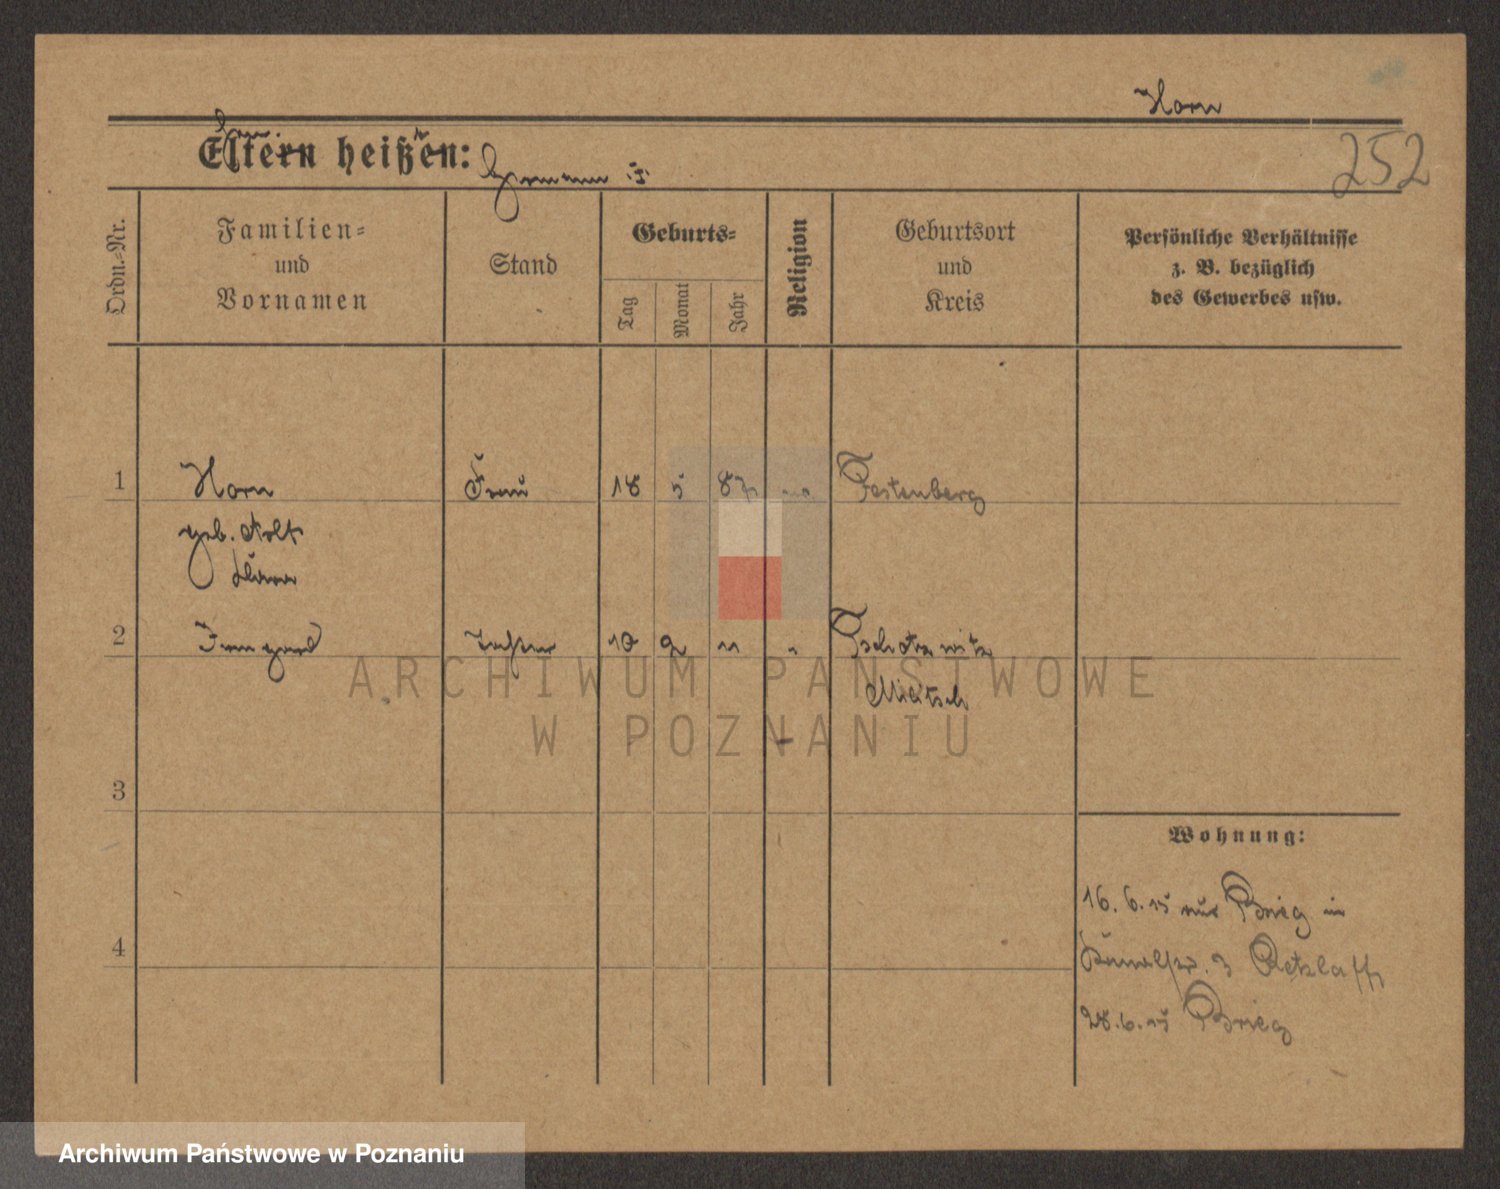 Horn
252
Eltern heißen:
Ordn.-Nr.
Familien-
und
Vornamen
Stand
Geburts-
Tag
Monat
Jahr
Religion
Geburtsort
und
Kreis
Persönliche Verhältnisse
z. B. bezüglich
des Gewerbes usw.
1 Horn Frau 18 5 87 Festenberg
geb.
2 Irmgard Tochter 10 2 11 "
Militsch
3
4
Wohnung:
16. 6. 15 aus Brieg in
3 Retzlaff
28. 6. 15 Brieg
ARCHIWUM PAŃSTWOWE
W POZNANIU
Archiwum Państwowe w Poznaniu